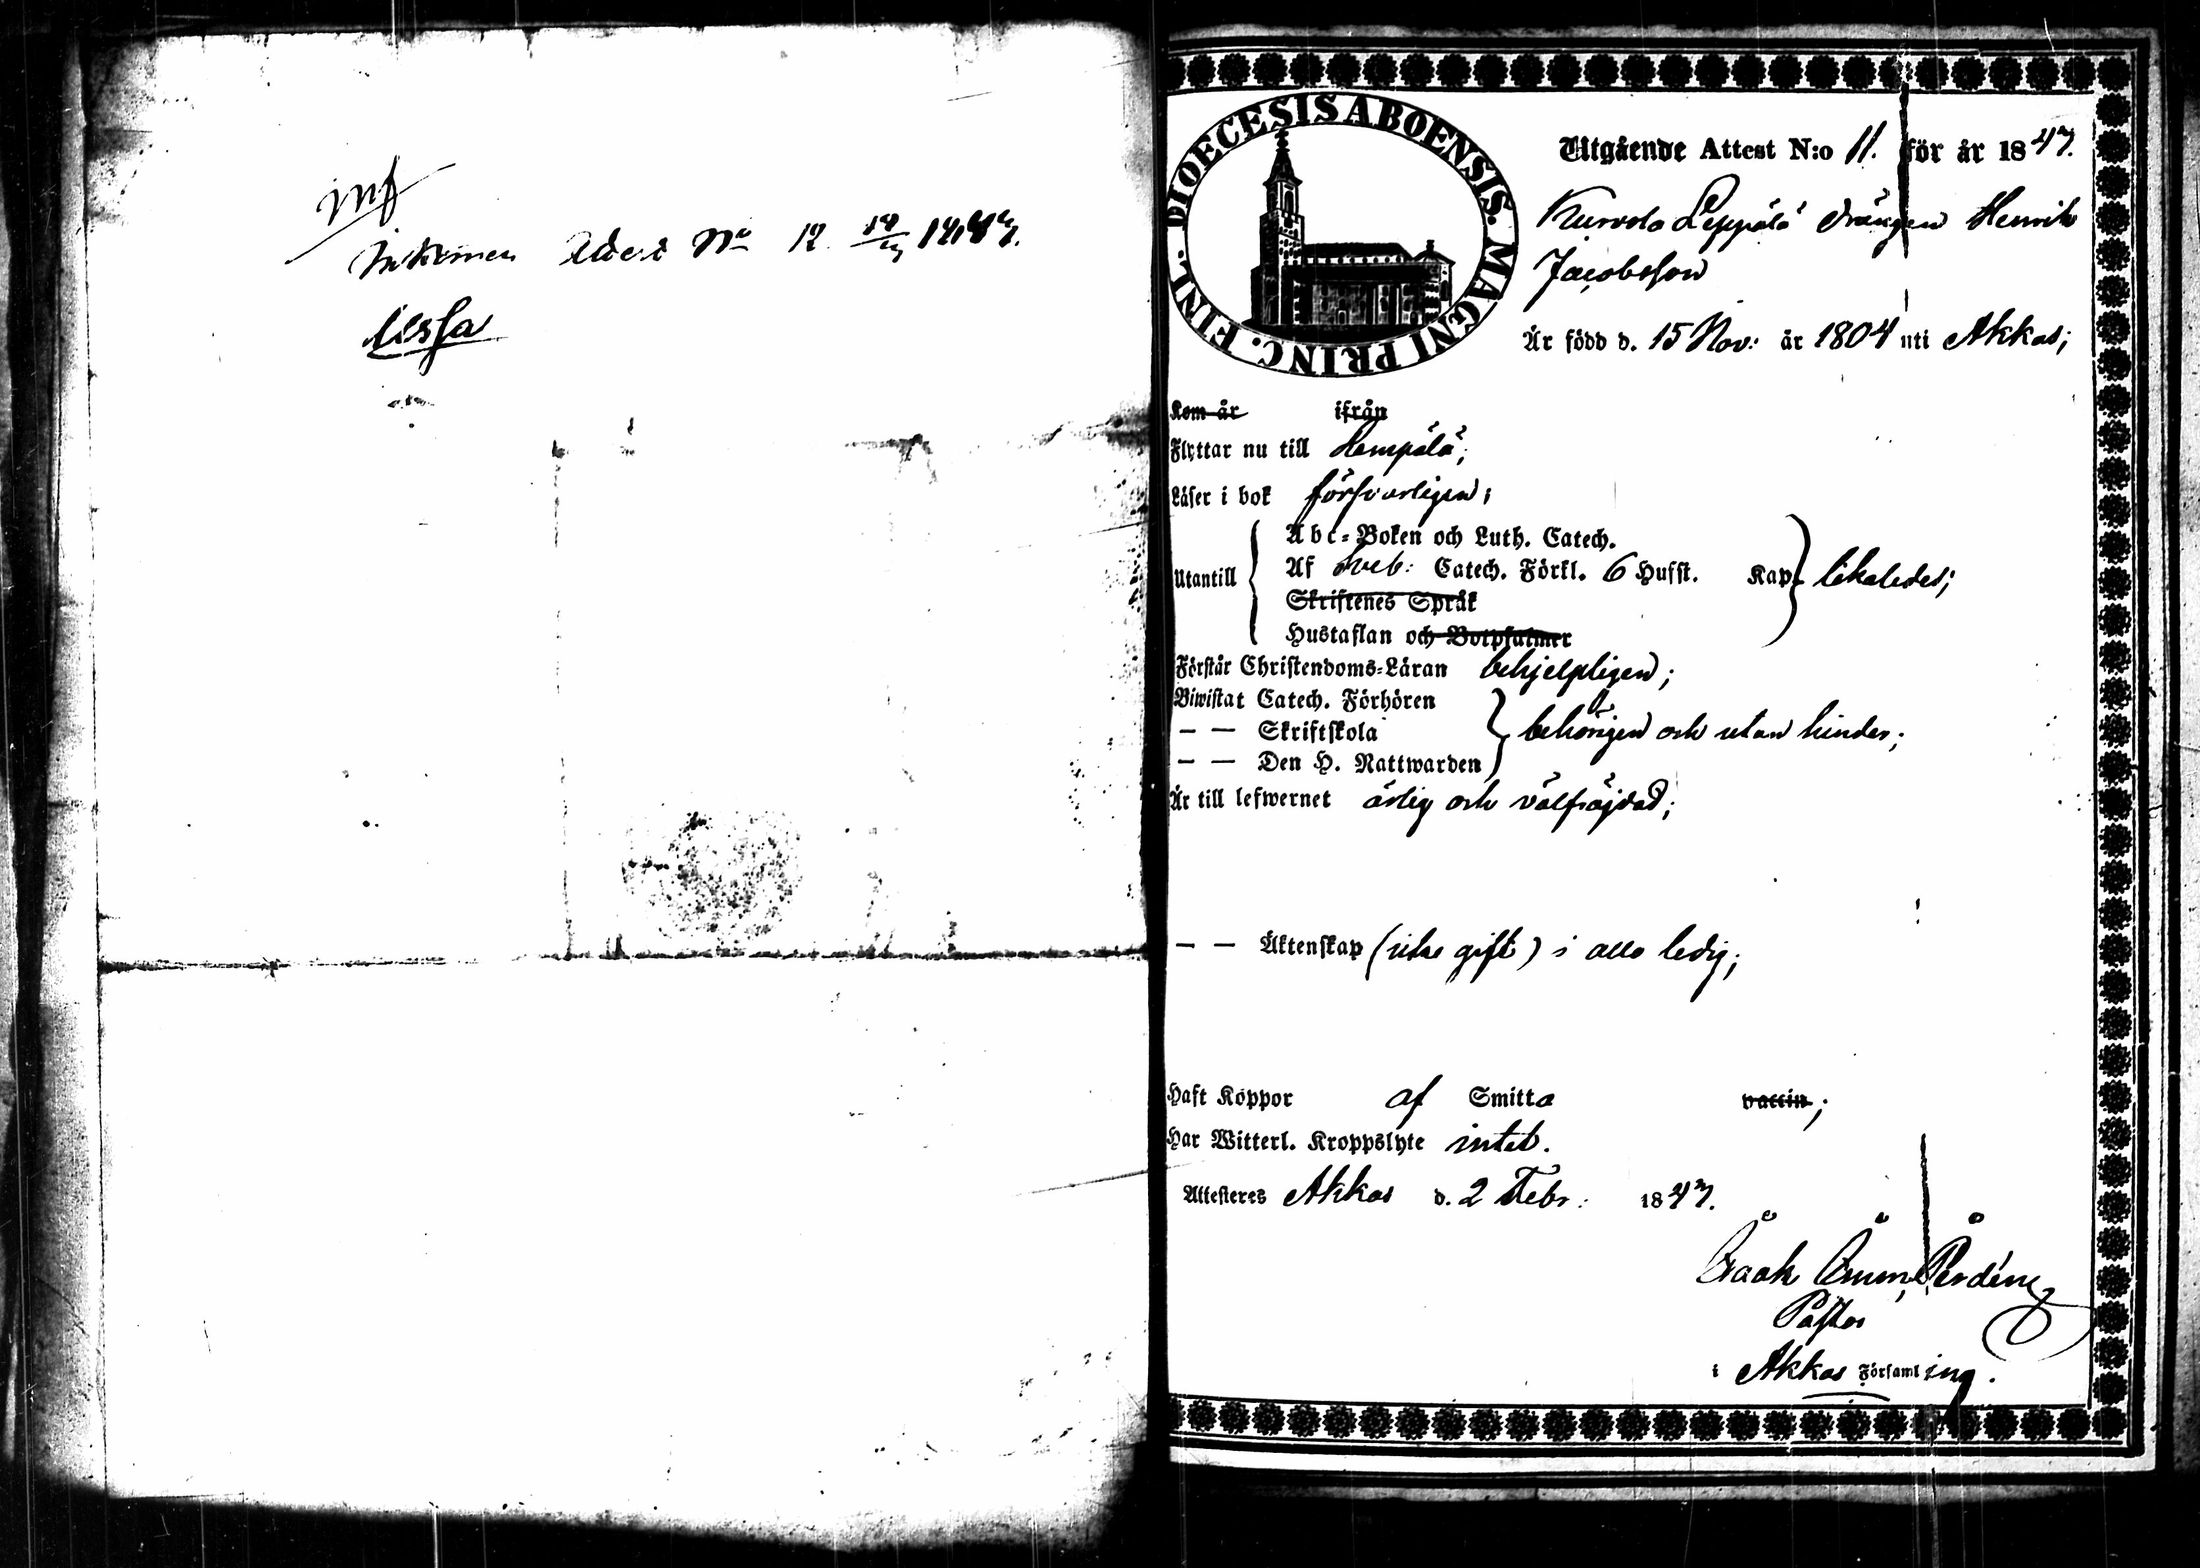 inf
Inkommen Attest No 12
Lessa
DIOECESIS ABOENSIS. MAGNI PRINC. FINL.
Utgående Attest N:o 11. för år 1847.
Kurvola Leppälä drängen Henrik
Jacobsson
Är född d. 15 Nov: år 1804 uti Akkas;
Kom år ifrån
Flyttar nu till Lempälä;
Läser i bok försvarligen;
Utantill
Abc-Boken och Luth. Catech.
Af Sveb: Catech. Förkl. 6 Hufst. Kap. likaledes;
Skriftenes Språk
Hustaflan och Botpsalmer
Förstår Christendoms-Läran behjelpligen;
Biwistat Catech. Förhören
— — Skriftskola behörigen och utan hinder;
— — Den H. Nattwarden
Är till lefwernet ärlig och välfräjdad;
— — Äktenskap (icke gift) i allo ledig;
Haft Koppor af Smitta vaccin;
Har Witterl. Kroppslyte intet.
Attesteras Akkas d. 2 Febr: 1847.
Pastor
i Akkas Församling.